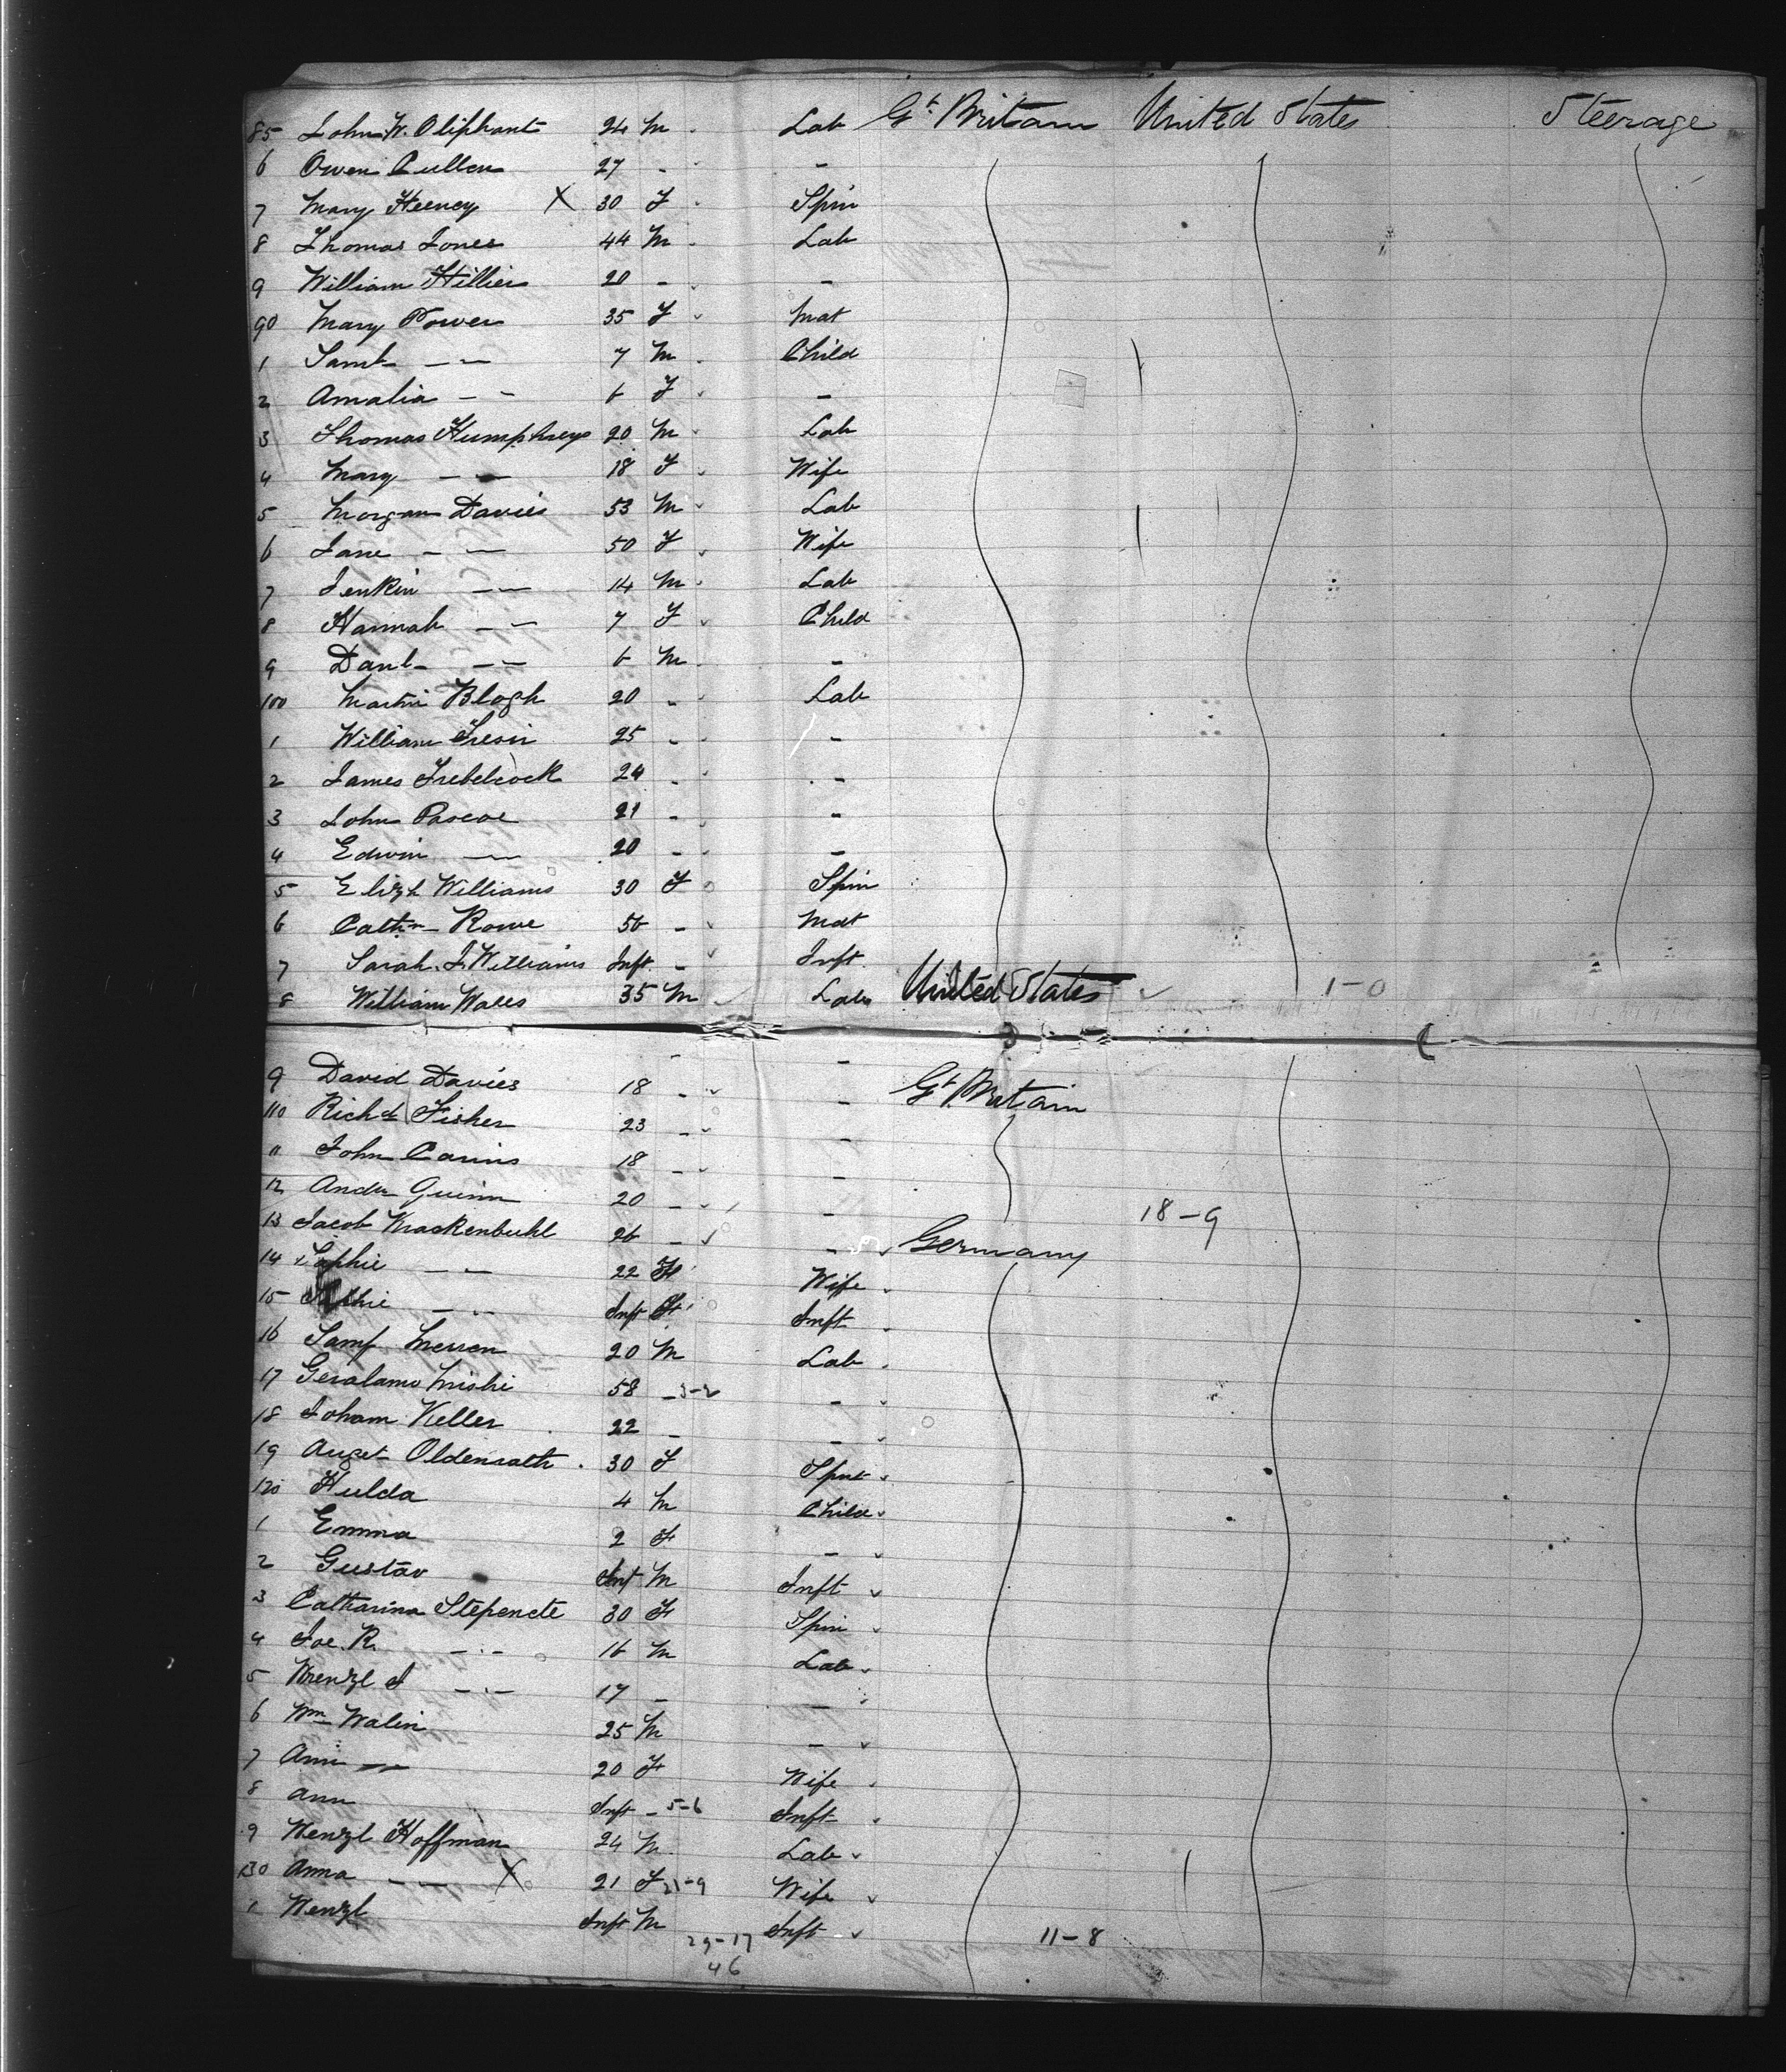 85 John W. Oliphant 24 M Lab Gt. Britain United States Steerage
6 Owen Cullen 27 - -
7 Mary Heeney X 30 F Spin
8 Thomas Jones 44 M Lab
9 William Hillier 20 - -
90 Mary Power 35 F Mat
1 Saml - - 7 M Child
2 Amalia - - 6 F -
3 Thomas Humphreys 20 M Lab
4 Mary - - 18 F Wife
5 Morgan Davies 53 M Lab
6 Jane - - 50 F Wife
7 Jenkin - - 14 M Lab
8 Hannah - - 7 F Child
9 Danl - - 6 M -
100 Martin Blogh 20 - Lab
1 William Tresir 25 - -
2 James Trebelcock 24 - -
3 John Pascoe 21 - -
4 Edwin - 20 - -
5 Elizh Williams 30 F Spin
6 Cathn Rowe 56 - Mat
7 Sarah J. Williams Inft - Inft
8 William Wales 35 M Lab United States 1-0
9 David Davies 18 - - Gt Britain
110 Richd Fisher 23 - -
11 John Carins 18 - -
12 Andw Quinn 20 - - 18-9
13 Jacob Krackenbuhl 26 - - Germany
14 Sophie - - 22 F Wife
15 - - Inft F Inft
16 Samf Merren 20 M Lab
17 Geralamo Mishi 58 - 3-2 -
18 Joham Keller 22 - -
19 Auget Oldenrath 30 F Spin
120 Hulda 4 M Child
1 Emma 2 F -
2 Gustav Inf M Inft
3 Catharina Stepencte 30 F Spin
4 Joe. R. - - 16 M Lab
5 Wenzl J - - 17 - -
6 Wm Walin 25 M -
7 Ann - 20 F Wife
8 Ann Inft - 5-6 Inft
9 Wenzl Hoffman 24 M Lab
130 Anna - - X 21 F 21-9 Wife
1 Wenzl Inft M Inft 11-8
29-17
46